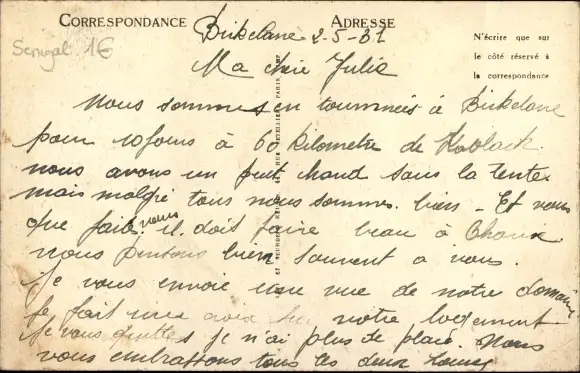 CORRESPONDANCE
ADRESSE
N'écrire que sur
le côté réservé à
la correspondance
Senegal 1€
Birkelane 2-5-31
Ma chère Julia
Nous sommes en tournnées à Birkelane
pour 10 jours à 60 kilometre de Kaolack
nous avons un peut chaud sous la tente
mais malgré tous nous sommes bien - Et vous
que faite vous il doit faire beau à
nous pensons bien souvent a vous.
Je vous envoie une vue de notre domaine
Je fait une croix sur notre logement
Je vous quittes je n'ai plus de place. Nous
vous embrassons tous les deux